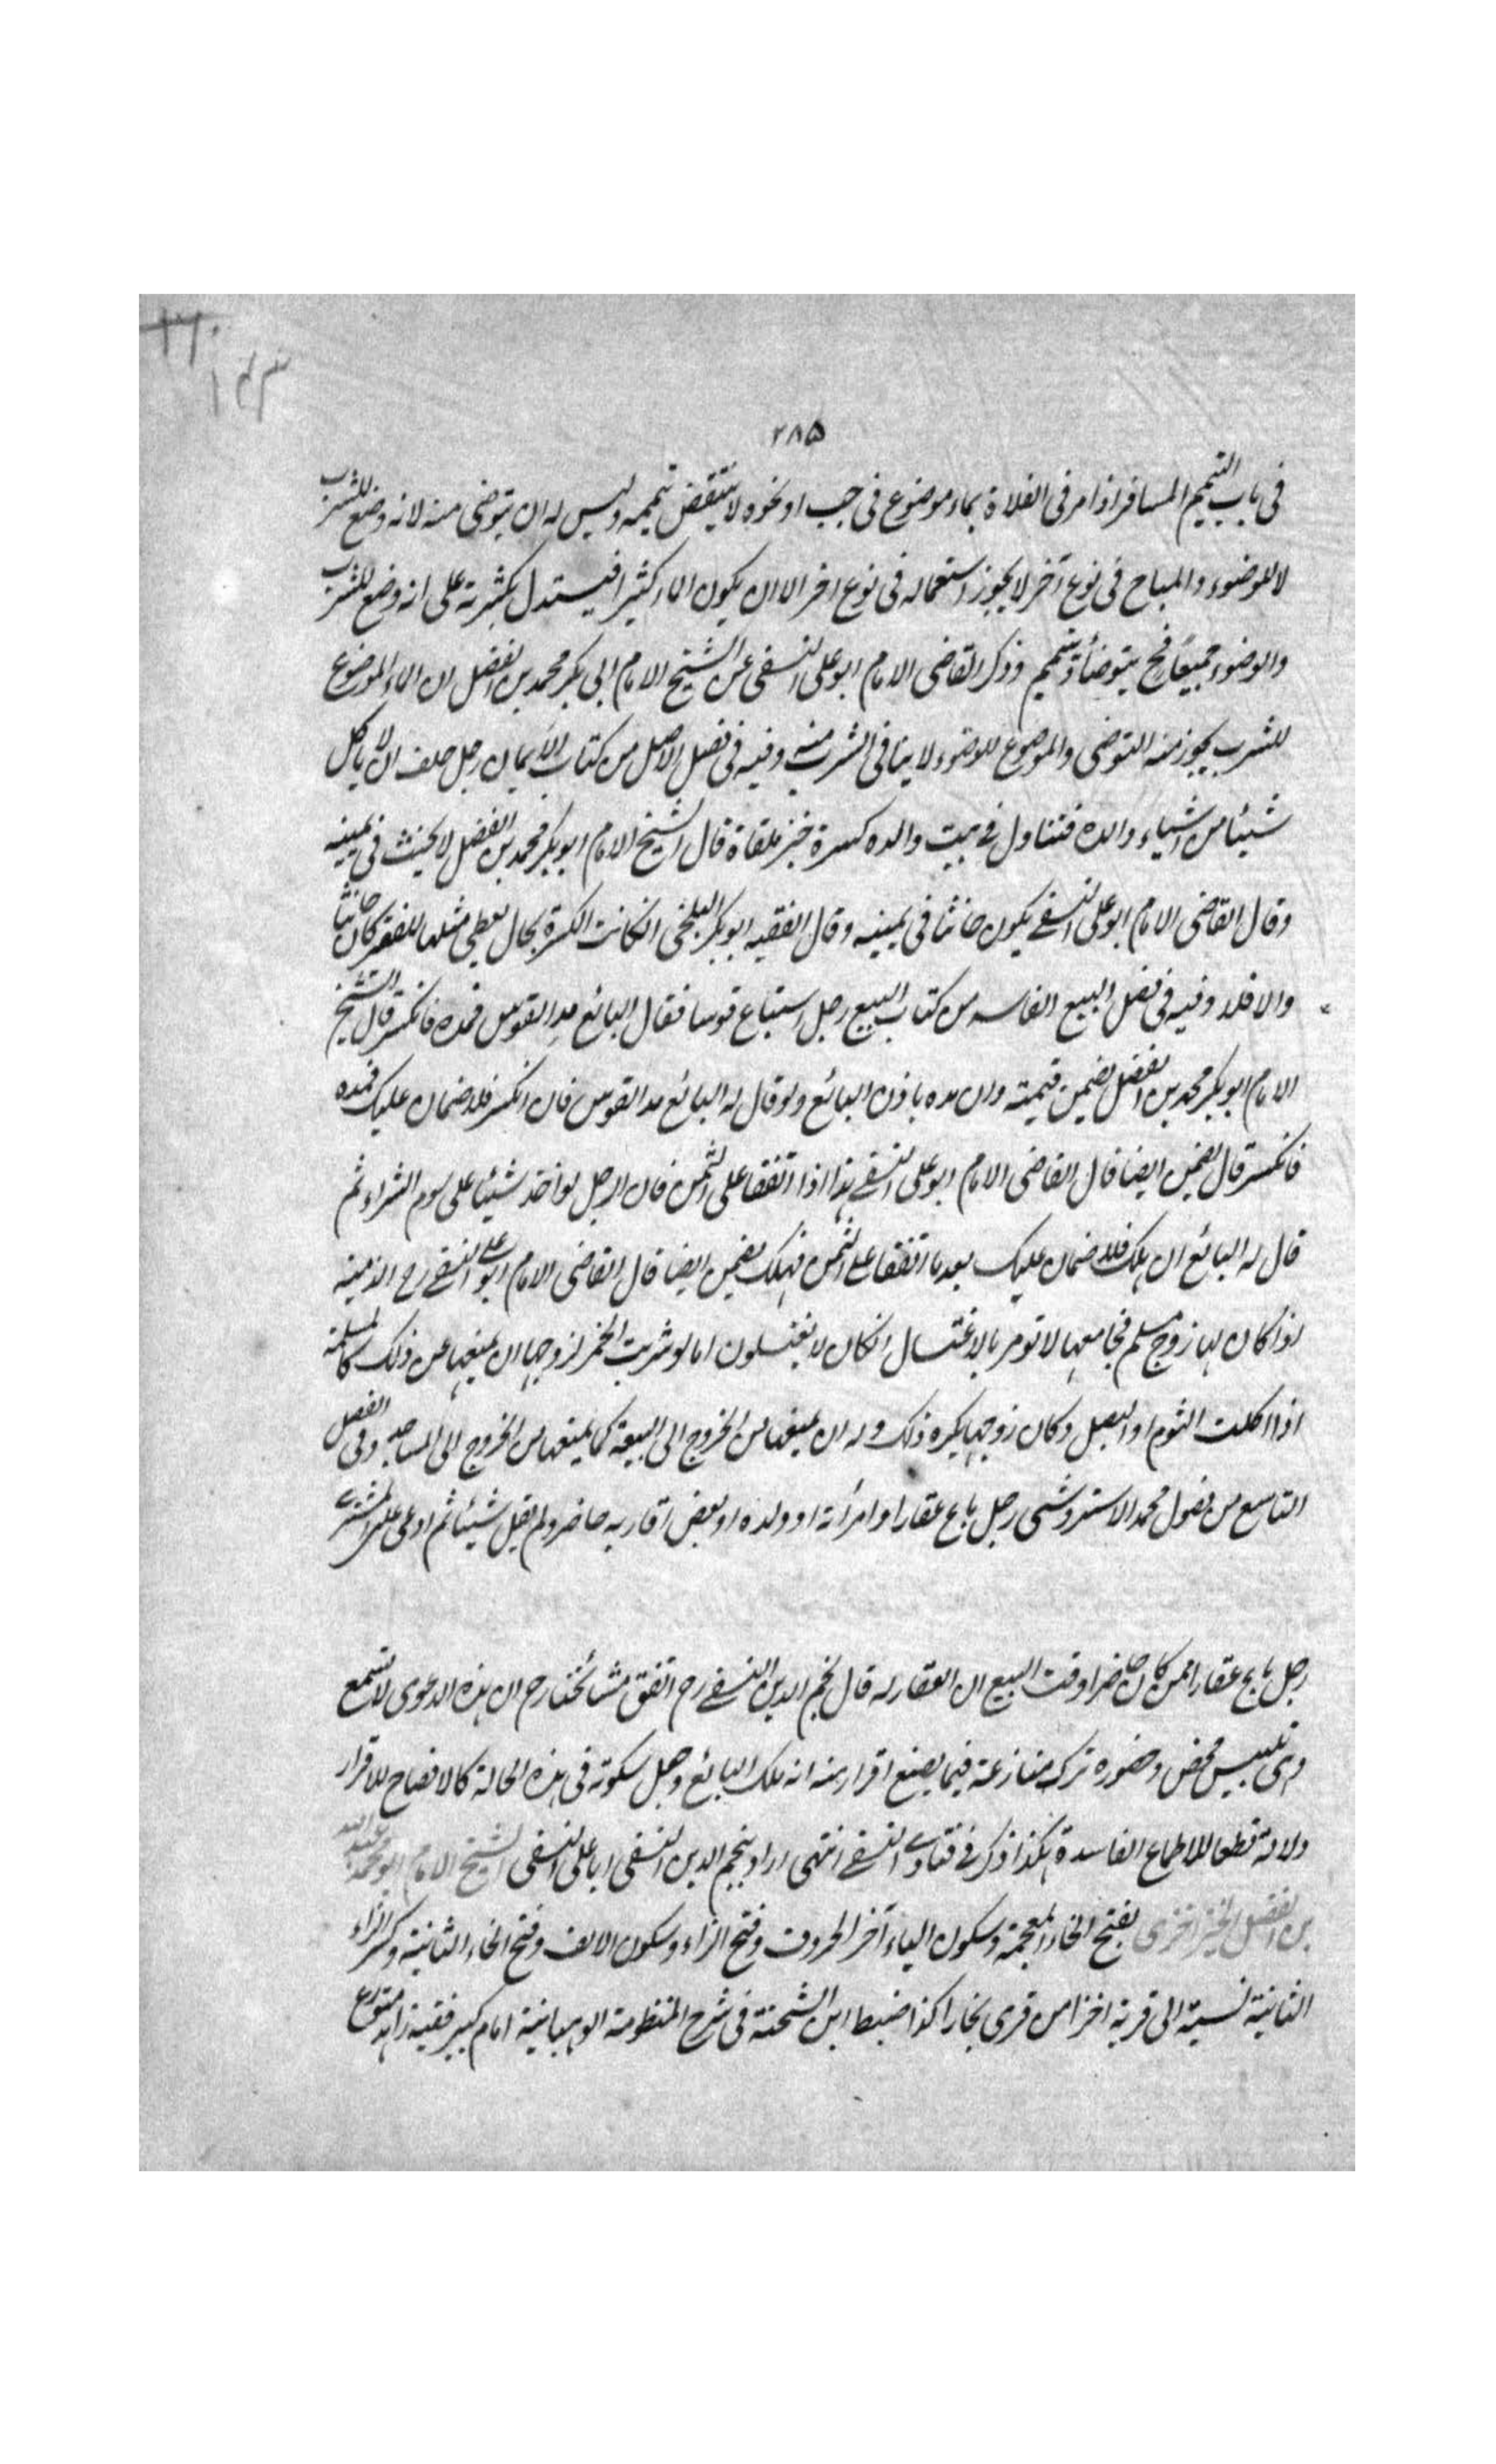 ٢٨٥
فى باب التيمم المسافر اذا مر فى الفلاة بماء موضوع فى جب او نحوه لا ينتقض تيممه وليس له ان يتوضى منه لانه وضع للشرب
لا للوضوء والمباح فى نوع آخر لا يجوز استعماله فى نوع اخر الا ان يكون الماء كثيرا فيستدل بكثرته على انه وضع للشرب
والوضوء جميعًا فح يتوضأ ويتيمم وذكر القاضى الامام ابو على النسفى عن الشيخ الامام ابى بكر محمد بن الفضل ان الماء الموضوع
للشرب يجوز منه التوضى والموضوع للوضوء لا ينافى الشرب منه وفيه فى فصل الاصل من كتاب الايمان رجل حلف ان لا ياكل
شيئا من اشياء والده فتناول فى بيت والده كسرة خبز ملقاة قال الشيخ الامام ابو بكر محمد بن الفضل لا يحنث فى يمينه
وقال القاضى الامام ابو على النسفى يكون حانثا فى يمينه وقال الفقيه ابو بكر البلخى انكانت الكسرة بحال يعطى مثلها للفقير كان حانثا
والا فلا وفيه فى فصل البيع الفاسد من كتاب البيع رجل استباع قوسا فقال البائع مد القوس فمده فانكسر قال الشيخ
الامام ابو بكر محمد بن الفضل يضمن قيمته وان مده باذن البائع ولو قال له البائع مد القوس فان انكسر فلا ضمان عليك فمده
فانكسر قال يضمن ايضا قال القاضى الامام ابو على النسفى هذا اذا اتفقا على الثمن فان الرجل لو اخذ شيئا على سوم الشراء ثم
قال له البائع ان هلك فلا ضمان عليك بعد ما اتفقا على الثمن فهلك يضمن ايضا قال القاضى الامام ابو على النسفى رح الذمية
اذا كان لها زوج مسلم فجامعها لا تومر بالاغتسال انكان لا يغتسلون اما لو شربت الخمر لزوجها ان يمنعها عن ذلك كالمسلمة
اذا اكلت الثوم او البصل وكان زوجها يكره ذلك وله ان يمنعها من الخروج الى البيعة كما يمنعها من الخروج الى المساجد وفى الفصل
التاسع من فصول محمد الاستروشنى رجل باع عقارا وامرأته او ولده او بعض اقاربه حاضر ولم يقل شيئا ثم ادعى على المشترى
رجل باع عقارا ممن كان حاضرا وقت البيع ان العقار له قال نجم الدين النسفى رح اتفق مشائخنا رح ان هذه الدعوى لا تسمع
وهى تلبيس محض وحضوره ترك منازعته فيما يصنع اقرار منه انه ملك البائع وجعل سكوته فى هذه الحالة كالافصاح للاقرار
ولالة قطعا للاطماع الفاسدة هكذا ذكر فى فتاوى النسفى انتهى اراد بنجم الدين النسفى ابا على النسفى الشيخ الامام ابو محمد عبد الله
بن الفضل الخيزاخزى بفتح الخاء المعجمة وسكون الياء آخر الحروف وفتح الزاء وسكون الالف وفتح الخاء الثانية وكسر الزاء
الثانية نسبة الى قرية اخزا من قرى بخارا كذا ضبط ابن الشحنة فى شرح المنظومة الوهبانية امام كبير فقيه زاهد متورع